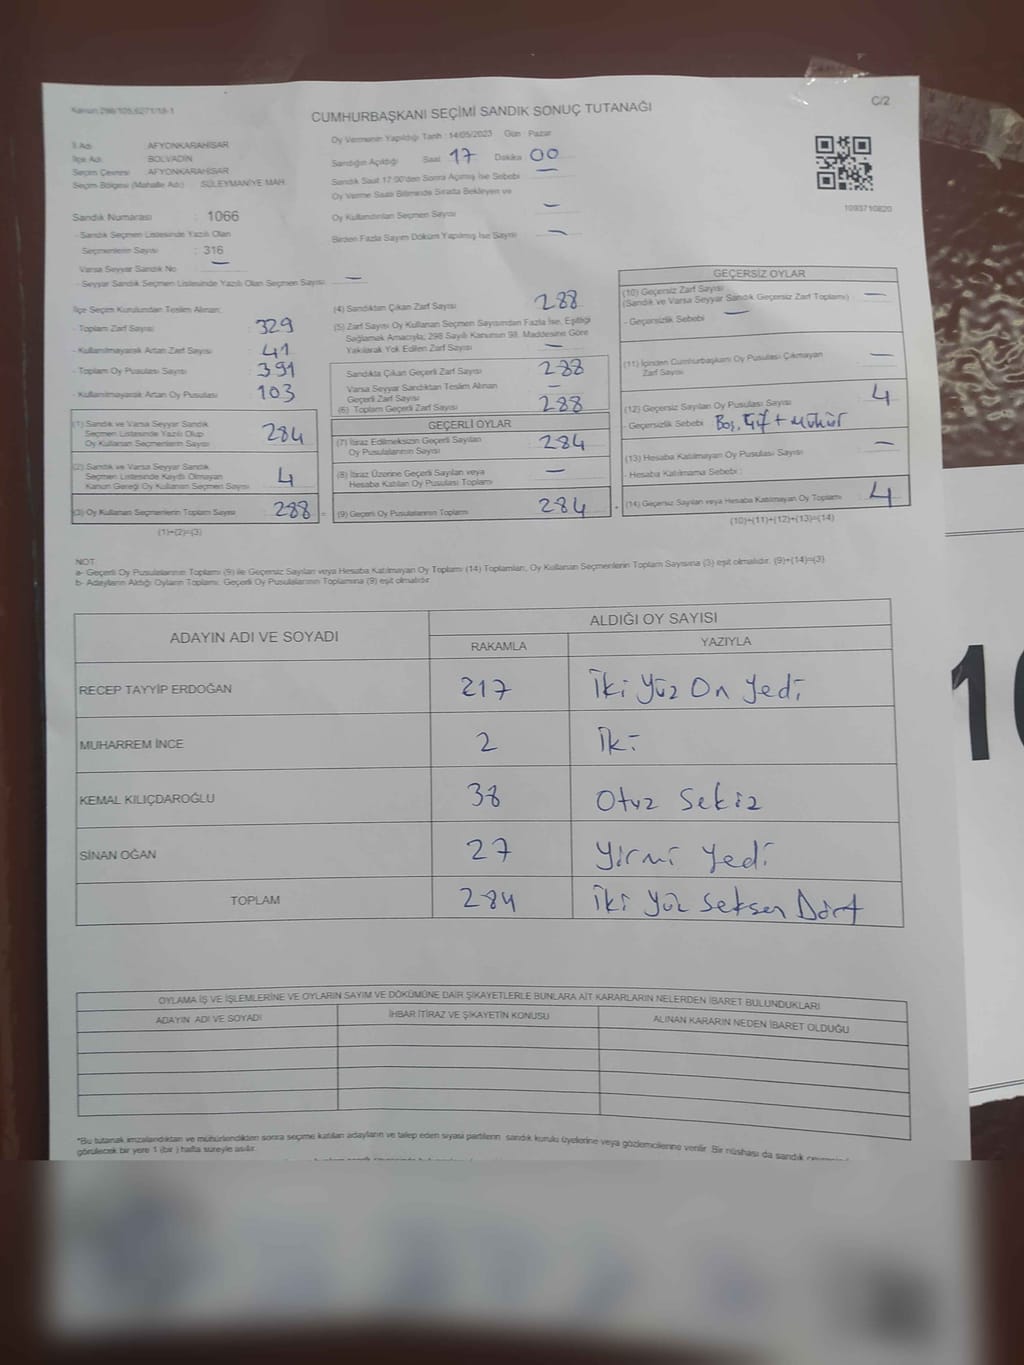 Kanun:298/105,6271/18-1
CUMHURBAŞKANI SEÇİMİ SANDIK SONUÇ TUTANAĞI
C/2
İl Adı AFYONKARAHİSAR
İlçe Adı BOLVADİN
Seçim Çevresi AFYONKARAHİSAR
Seçim Bölgesi (Mahalle Adı) : SÜLEYMANİYE MAH.
Oy Vermenin Yapıldığı Tarih : 14/05/2023 Gün : Pazar
Sandığın Açıldığı Saat 17 Dakika 00
Sandık Saat 17:00'den Sonra Açılmış İse Sebebi —
Oy Verme Saati Bitiminde Sırada Bekleyen ve
Oy Kullandırılan Seçmen Sayısı —
Birden Fazla Sayım Döküm Yapılmış İse Sayısı —
1093710820
Sandık Numarası : 1066
- Sandık Seçmen Listesinde Yazılı Olan
Seçmenlerin Sayısı : 316
Varsa Seyyar Sandık No —
- Seyyar Sandık Seçmen Listesinde Yazılı Olan Seçmen Sayısı : —
İlçe Seçim Kurulundan Teslim Alınan:
- Toplam Zarf Sayısı : 329
- Kullanılmayarak Artan Zarf Sayısı : 41
- Toplam Oy Pusulası Sayısı : 391
- Kullanılmayarak Artan Oy Pusulası : 103
(1) Sandık ve Varsa Seyyar Sandık
Seçmen Listesinde Yazılı Olup
Oy Kullanan Seçmenlerin Sayısı 284
(2) Sandık ve Varsa Seyyar Sandık
Seçmen Listesinde Kaydı Olmayan
Kanun Gereği Oy Kullanan Seçmen Sayısı 4
(3) Oy Kullanan Seçmenlerin Toplam Sayısı 288 =
(1)+(2)=(3)
(4) Sandıktan Çıkan Zarf Sayısı 288
(5) Zarf Sayısı Oy Kullanan Seçmen Sayısından Fazla İse, Eşitliği
Sağlamak Amacıyla; 298 Sayılı Kanunun 98. Maddesine Göre
Yakılarak Yok Edilen Zarf Sayısı —
Sandıkta Çıkan Geçerli Zarf Sayısı 288
Varsa Seyyar Sandıktan Teslim Alınan
Geçerli Zarf Sayısı —
(6) Toplam Geçerli Zarf Sayısı 288
GEÇERLİ OYLAR
(7) İtiraz Edilmeksizin Geçerli Sayılan
Oy Pusulalarının Sayısı 284
(8) İtiraz Üzerine Geçerli Sayılan veya
Hesaba Katılan Oy Pusulası Toplamı —
(9) Geçerli Oy Pusulalarının Toplamı 284 +
GEÇERSİZ OYLAR
(10) Geçersiz Zarf Sayısı
(Sandık ve Varsa Seyyar Sandık Geçersiz Zarf Toplamı) —
- Geçersizlik Sebebi : —
(11) İçinden Cumhurbaşkanı Oy Pusulası Çıkmayan
Zarf Sayısı —
(12) Geçersiz Sayılan Oy Pusulası Sayısı 4
- Geçersizlik Sebebi : Boş, Çift + Mühür
(13) Hesaba Katılmayan Oy Pusulası Sayısı —
- Hesaba Katılmama Sebebi :
(14) Geçersiz Sayılan veya Hesaba Katılmayan Oy Toplamı 4
(10)+(11)+(12)+(13)=(14)
NOT:
a- Geçerli Oy Pusulalarının Toplamı (9) ile Geçersiz Sayılan veya Hesaba Katılmayan Oy Toplamı (14) Toplamları, Oy Kullanan Seçmenlerin Toplam Sayısına (3) eşit olmalıdır. (9)+(14)=(3)
b- Adayların Aldığı Oyların Toplamı, Geçerli Oy Pusulalarının Toplamına (9) eşit olmalıdır.
ADAYIN ADI VE SOYADI
ALDIĞI OY SAYISI
RAKAMLA YAZIYLA
RECEP TAYYİP ERDOĞAN 217 İki Yüz On Yedi
MUHARREM İNCE 2 İki
KEMAL KILIÇDAROĞLU 38 Otuz Sekiz
SİNAN OĞAN 27 Yirmi Yedi
TOPLAM 284 İki Yüz Seksen Dört
OYLAMA İŞ VE İŞLEMLERİNE VE OYLARIN SAYIM VE DÖKÜMÜNE DAİR ŞİKAYETLERLE BUNLARA AİT KARARLARIN NELERDEN İBARET BULUNDUKLARI
ADAYIN ADI VE SOYADI İHBAR İTİRAZ VE ŞİKAYETİN KONUSU ALINAN KARARIN NEDEN İBARET OLDUĞU
*Bu tutanak imzalandıktan ve mühürlendikten sonra seçime katılan adayların ve talep eden siyasi partilerin sandık kurulu üyelerine veya gözlemcilerine verilir. Bir nüshası da sandık
görülecek bir yere 1 (bir) hafta süreyle asılır.